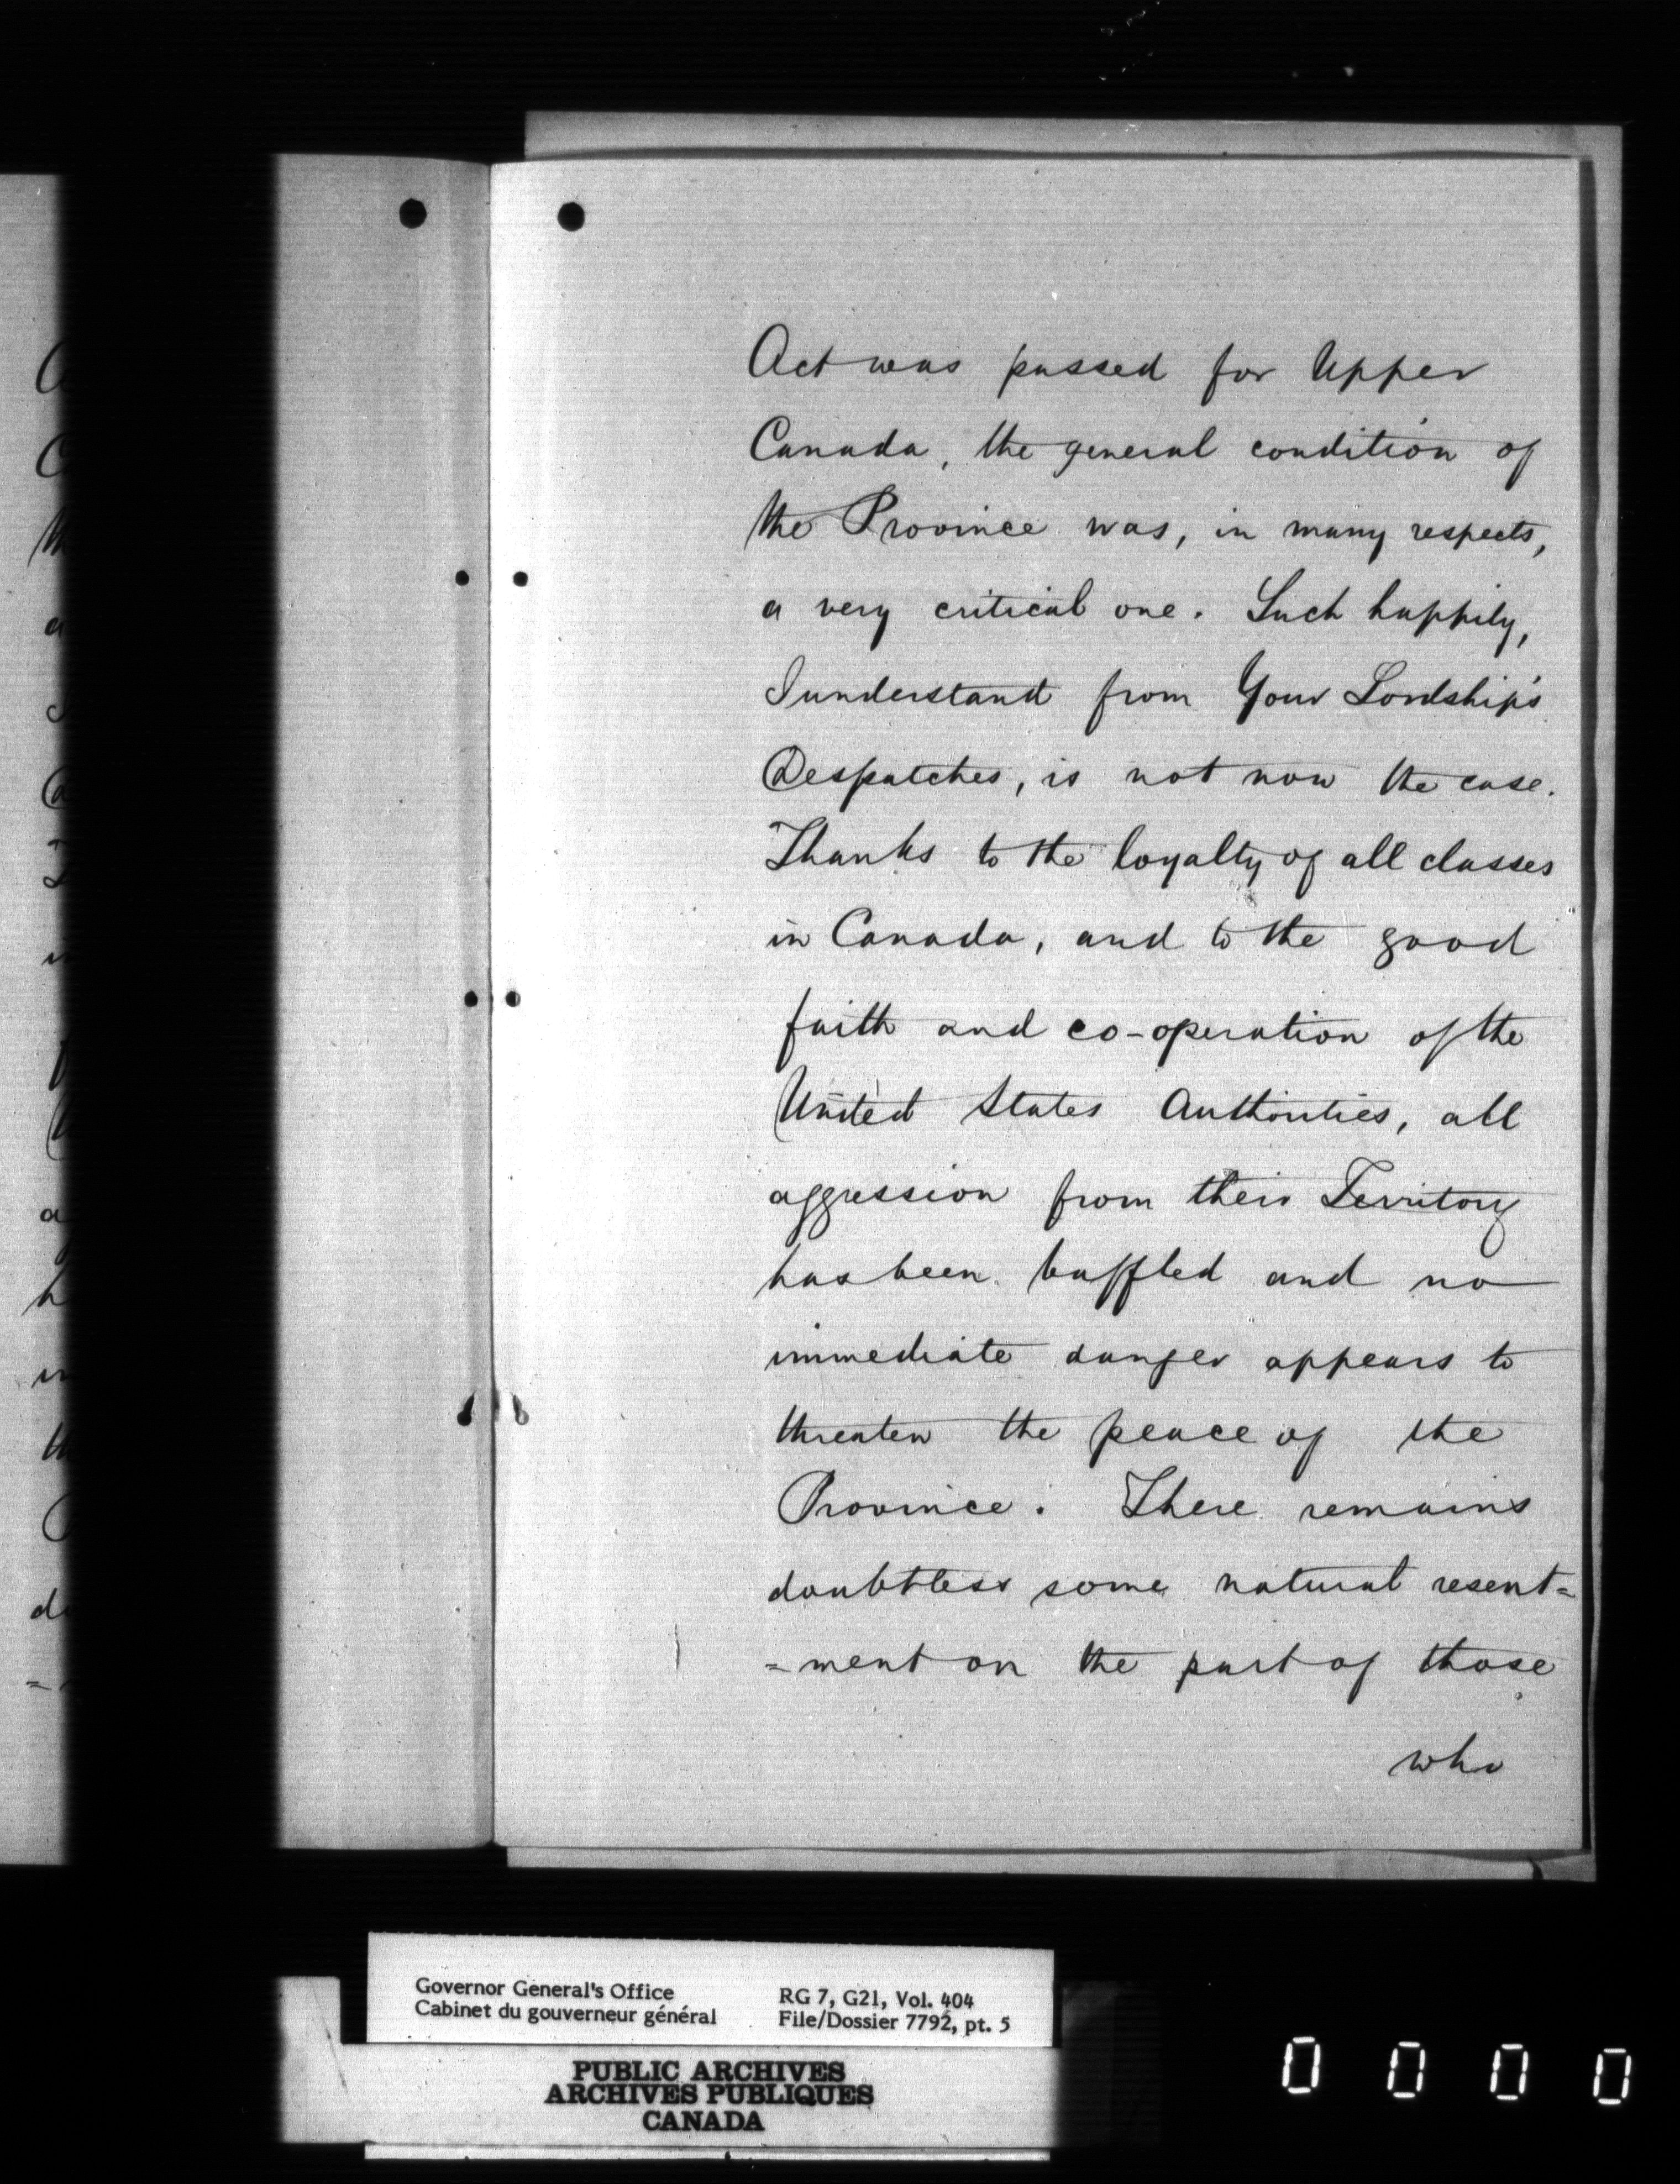 Act was passed for Upper
Canada, the general condition of
the Province was, in many respects,
a very critical one. Such happily,
I understand from Your Lordship's
Despatches, is not now the case.
Thanks to the loyalty of all classes
in Canada, and to the good
faith and co-operation of the
United States Authorities, all
aggression from their Territory
has been baffled and no
immediate danger appears to
threaten the peace of the
Province. There remains
doubtless some natural resent=
=ment on the part of those
who
Governor General's Office
Cabinet du gouverneur général
RG 7, G21, Vol. 404
File/Dossier 7792, pt. 5
PUBLIC ARCHIVES
ARCHIVES PUBLIQUES
CANADA
0 0 0 0